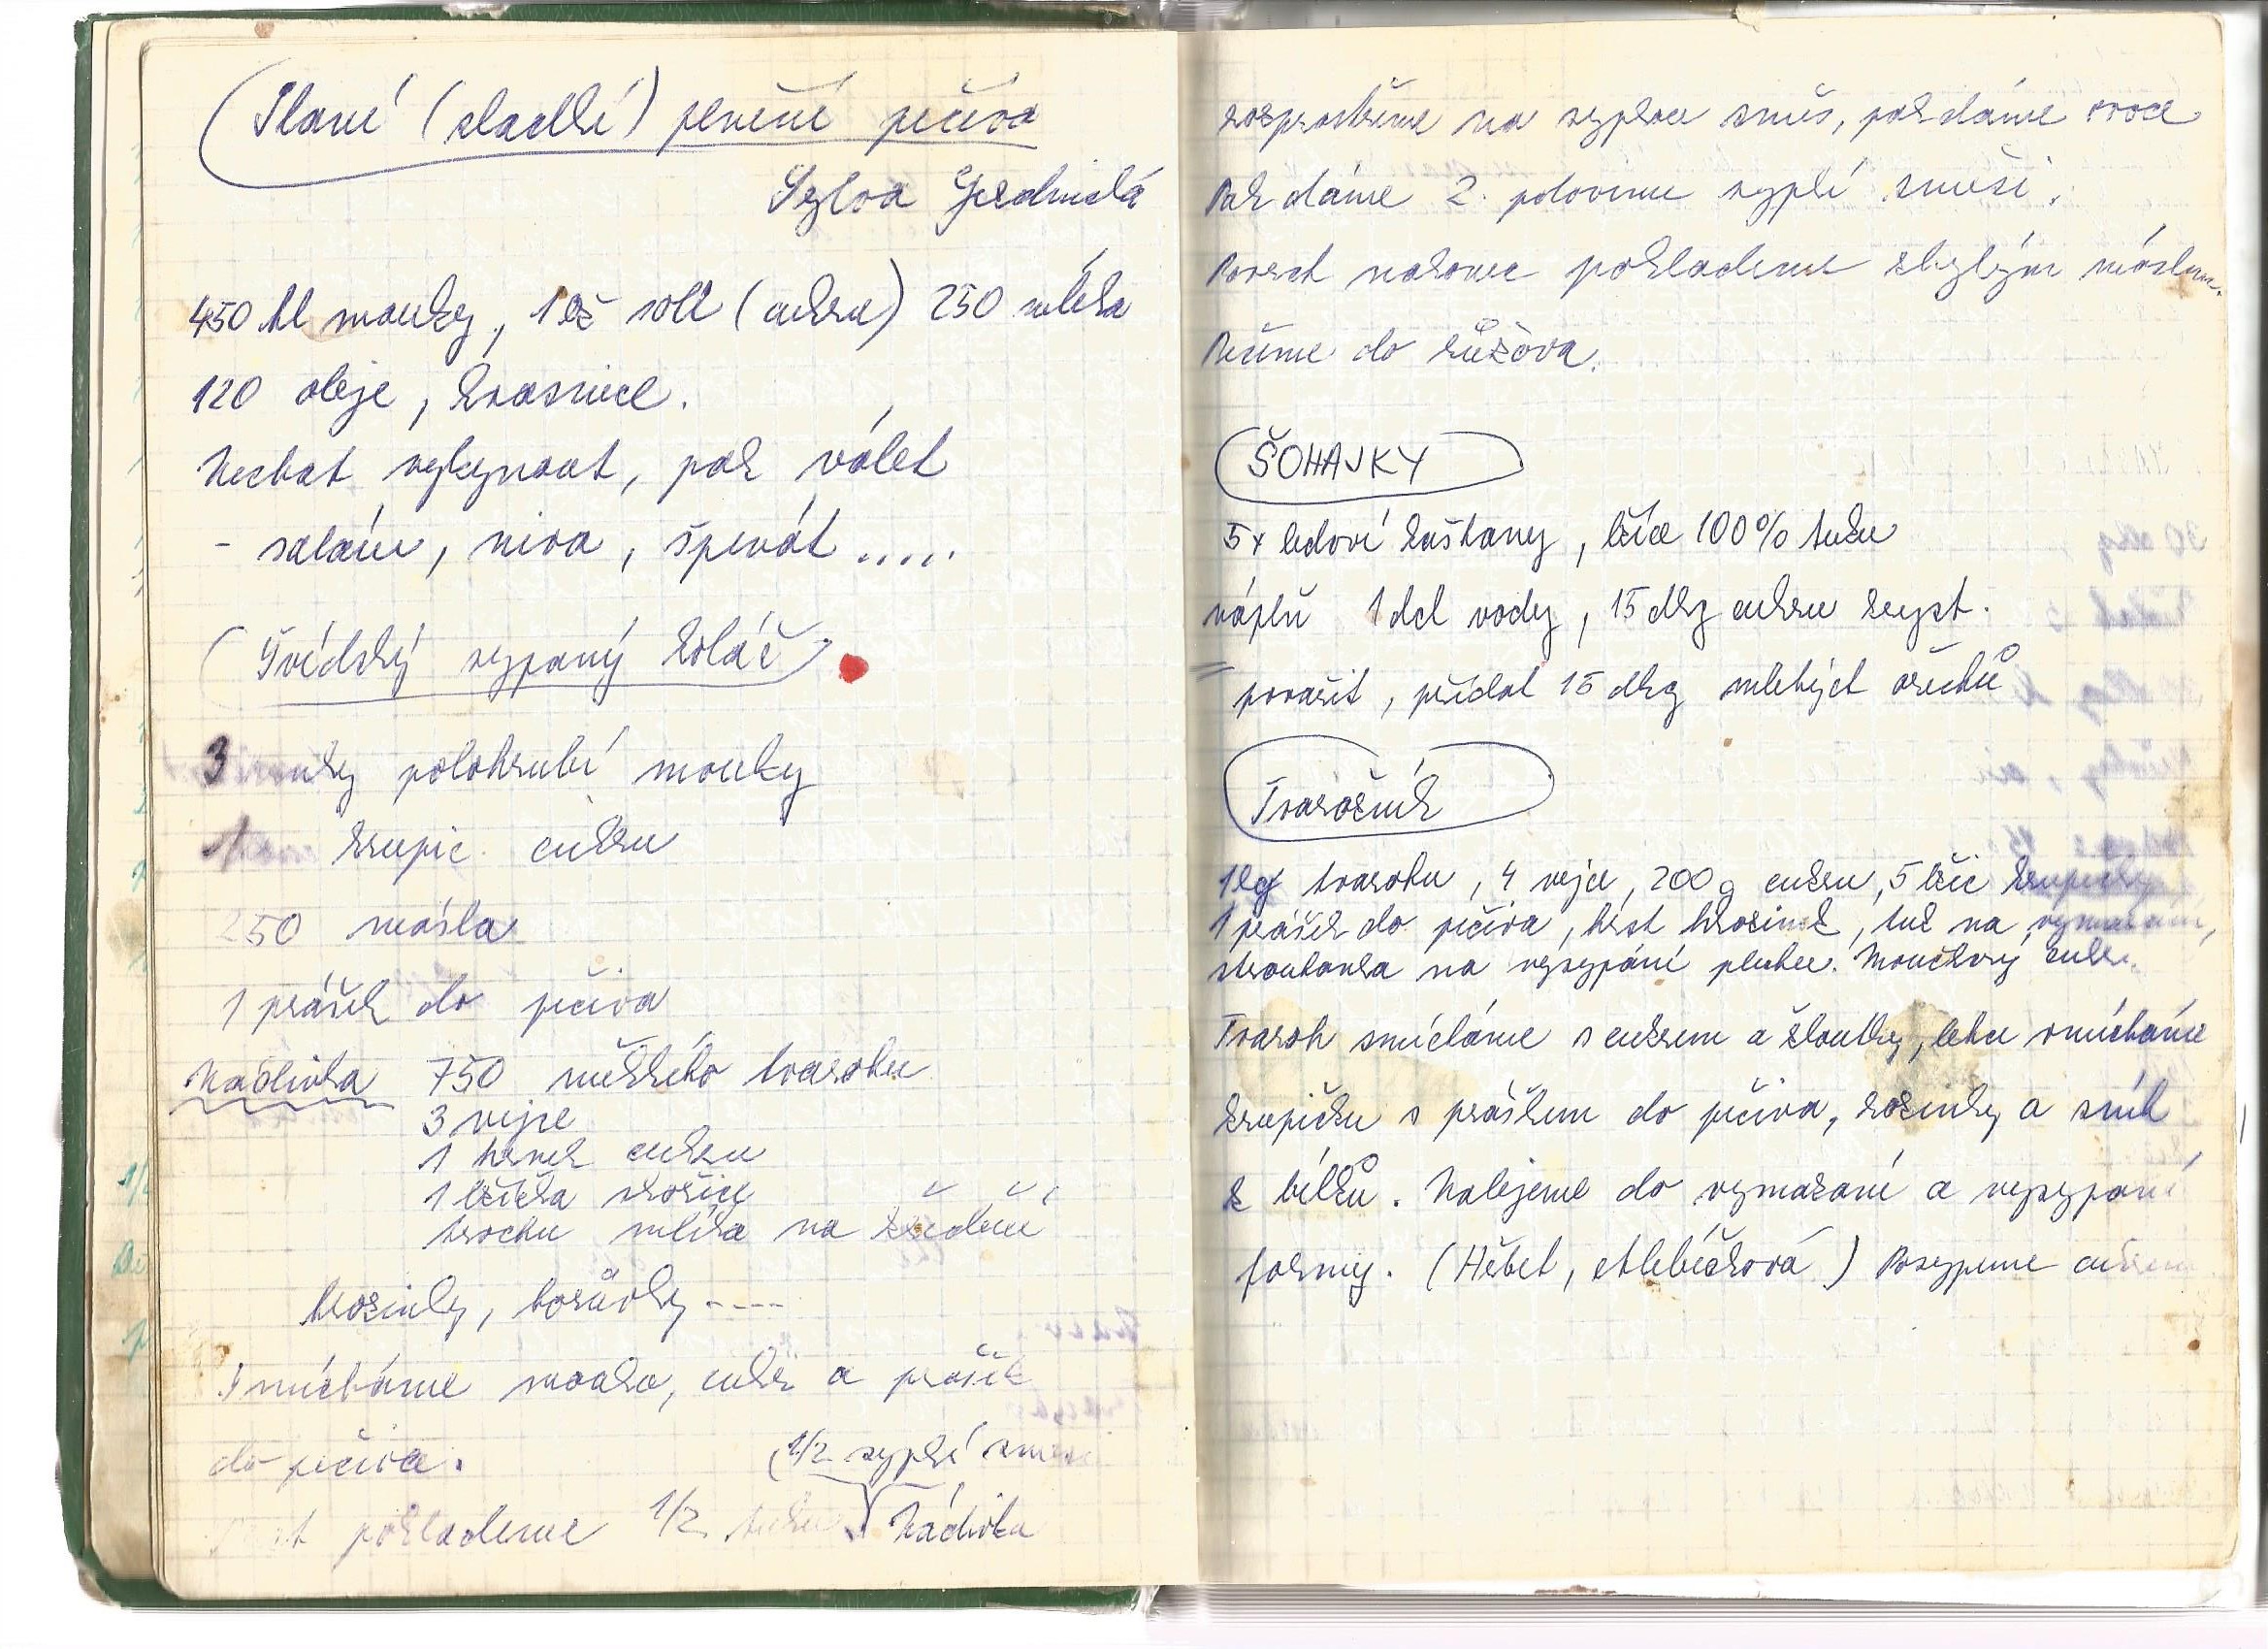 Slané (sladké) plněné pečivo
Sylva
450 hl mouky, 1 lž soli (cukru) 250 mléka
120 oleje, kvasnice.
Nechat vykynout, pak válet
- salám, niva, špenát .....
Švédský sypaný koláč
3 hrnky polohrubé mouky
1 krupic. cukru
250 másla
1 prášek do pečiva
Nádivka 750 měkkého tvarohu
3 vejce
1 hrnek cukru
1 lžička skořice
trochu mléka na zředění
hrozinky, borůvky ----
Smícháme mouku, cukr a prášek
do pečiva.
(1/2 sypké směsi
poklademe 1/2 tuku nádivku
rozprostřeme na sypkou směs, pokladáme ovoce
Pak dáme 2. polovinu sypké směsi.
Povrch nakonec poklademe zbylým máslem.
Pečeme do růžova.
ŠOHAJKY
5x ledové kaštany, lžíce 100% tuku
náplň 1 dcl vody, 15 dkg cukru kryst.
povařit, přidat 15 dkg mletých ořechů
Tvarožník
1kg tvarohu, 4 vejce, 200g cukru, 5 lžic krupičky
1 prášek do pečiva, hrst hrozinek, tuk na vymazání,
strouhanka na vysypání plechu. Moučkový cukr.
Tvaroh smícháme s cukrem a žloutky, lehce vmícháme
krupičku s práškem do pečiva, rozinky a sníh
z bílků. Nalejeme do vymazané a vysypané
formy. (Hřbet, chlebíčková) Posypeme cukrem